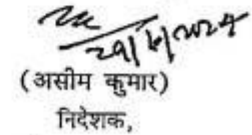 29/6/2024
(असीम कुमार)
निदेशक,